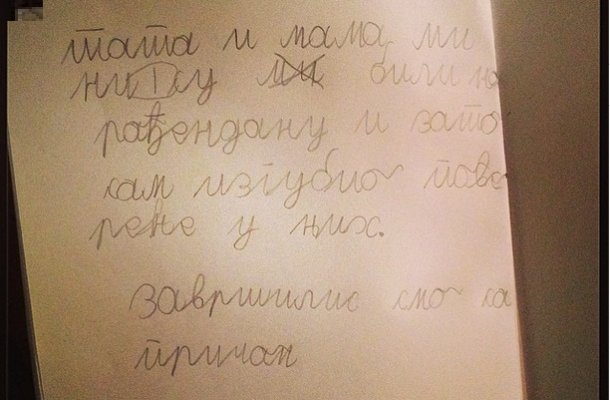 тата и мама ми
ни|су ми били на
рађендану и зато
сам изгубио пове
рене у њих.
завршилис смо са
причам